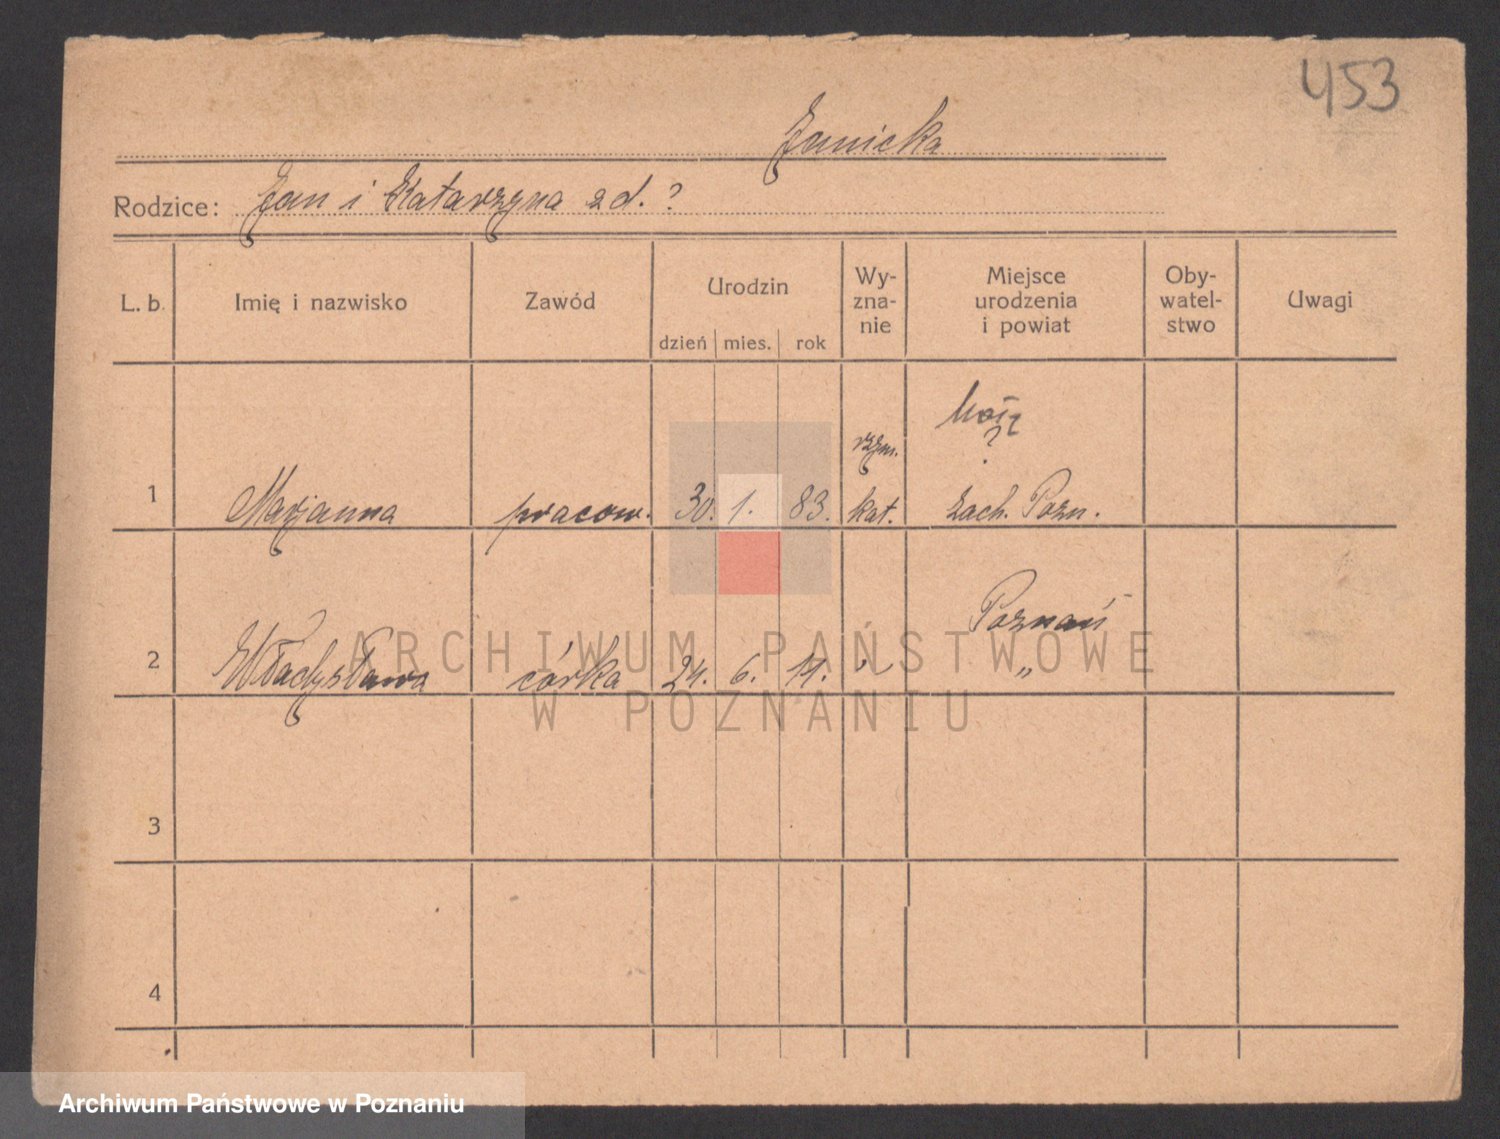 453
Janicka
Rodzice: Jan i Katarzyna zd. ?
L. b. Imię i nazwisko Zawód Urodzin dzień mies. rok Wy-zna-nie Miejsce urodzenia i powiat Oby-watel-stwo Uwagi
?
rzym.
1 Marjanna pracow. 30. 1. 83. kat. zach. Pozn.
Poznań
2 Władysława córka 24. 6. 11. " "
3
4
ARCHIWUM PAŃSTWOWE
W POZNANIU
Archiwum Państwowe w Poznaniu